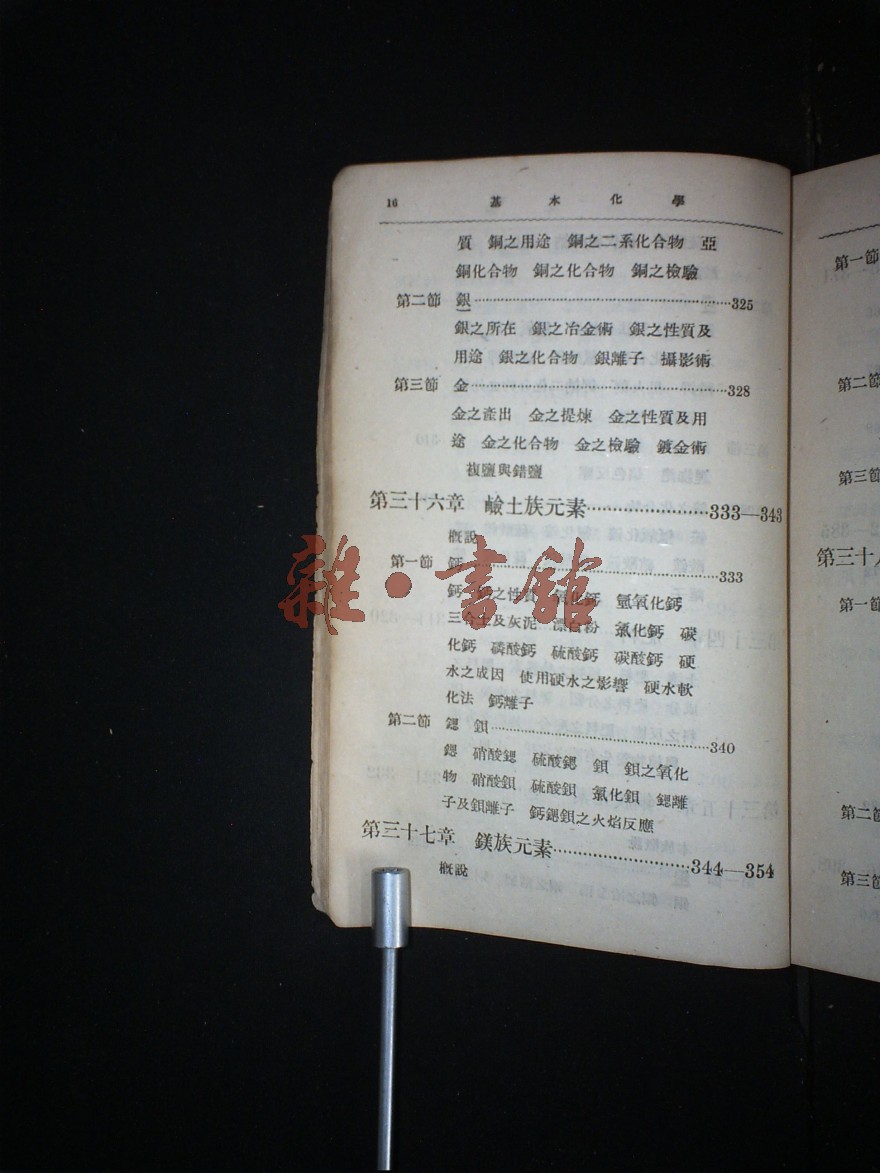 16 基本化學
質 銅之用途 銅之二系化合物 亞
銅化合物 銅之化合物 銅之檢驗
第二節 銀……325
銀之所在 銀之冶金術 銀之性質及
用途 銀之化合物 銀離子 攝影術
第三節 金……328
金之產出 金之提煉 金之性質及用
途 金之化合物 金之檢驗 鍍金術
複鹽與錯鹽
第三十六章 鹼土族元素……333—343
概說
第一節 鈣……333
鈣 鈣之性質 氧化鈣 氫氧化鈣
三合土及灰泥 漂白粉 氯化鈣 碳
化鈣 磷酸鈣 硫酸鈣 碳酸鈣 硬
水之成因 使用硬水之影響 硬水軟
化法 鈣離子
第二節 鍶 鋇……340
鍶 硝酸鍶 硫酸鍶 鋇 鋇之氧化
物 硝酸鋇 硫酸鋇 氯化鋇 鍶離
子及鋇離子 鈣鍶鋇之火焰反應
第三十七章 鎂族元素……344—354
概說
雜·書館
第一節
第二節
第三節
第三十八
第一節
第二節
第三節